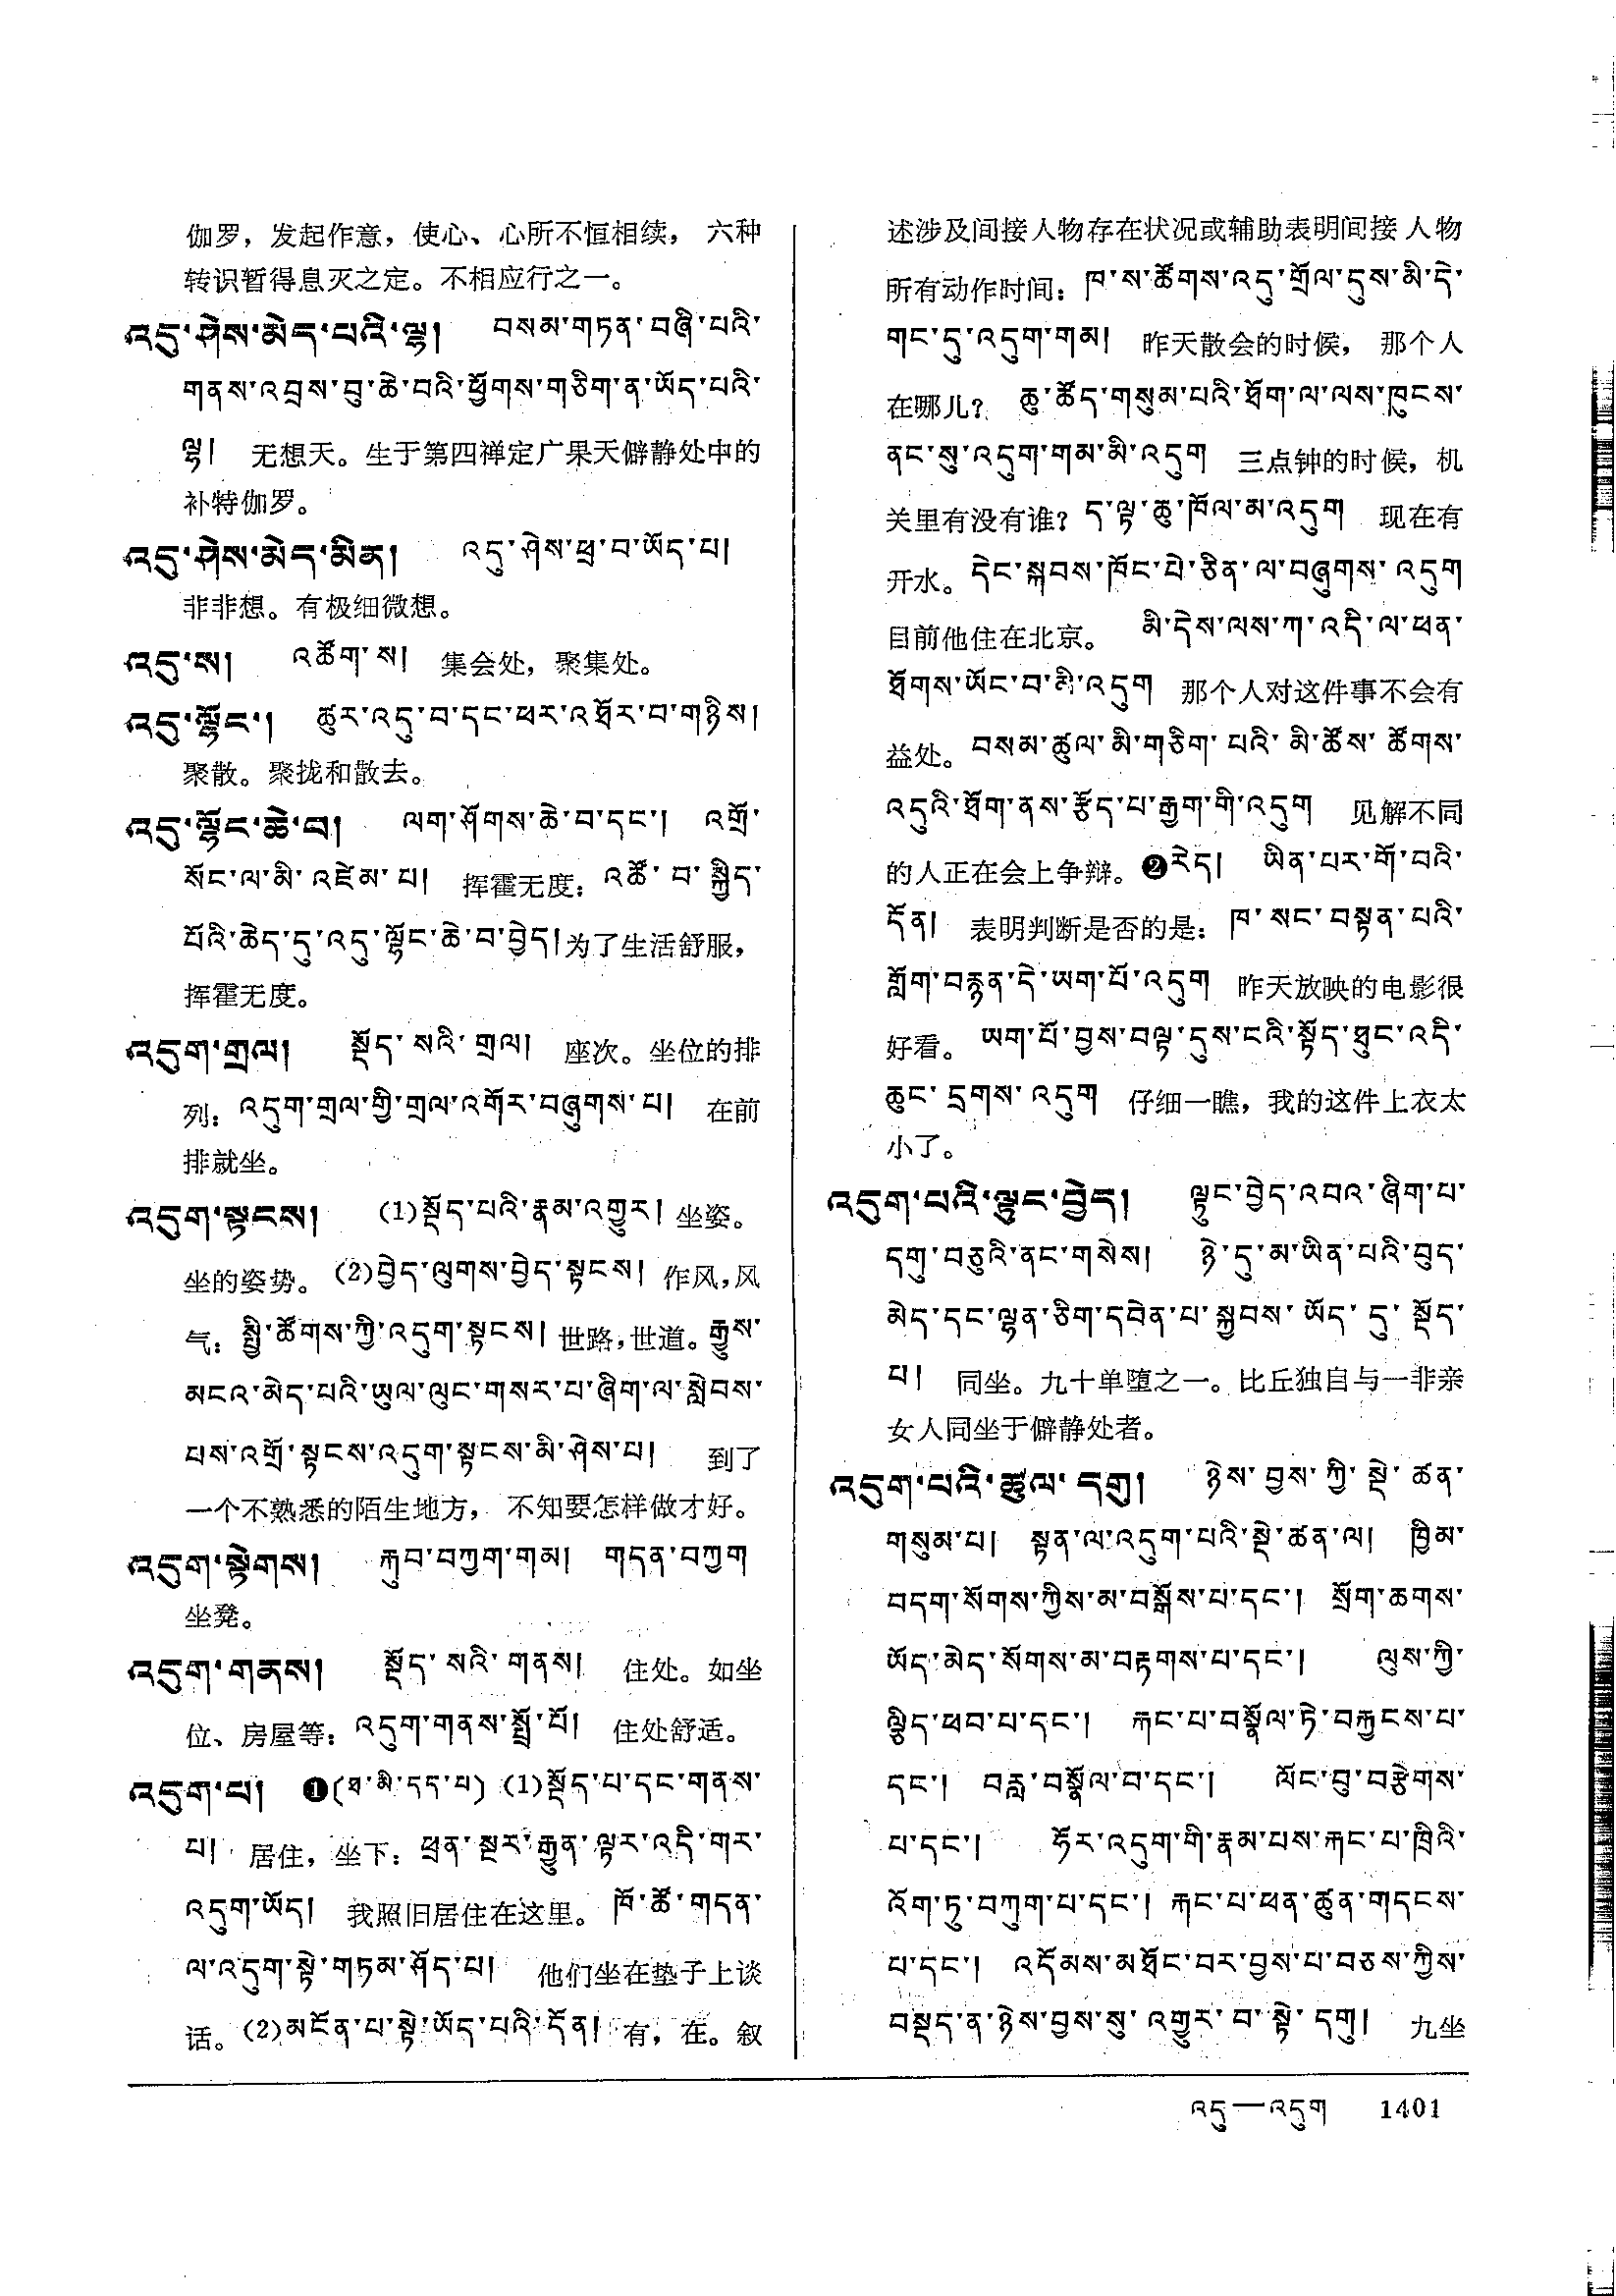 伽罗，发起作意，使心、心所不恒相续， 六种
转识暂得息灭之定。不相应行之一。
འདུ་ཤེས་མེད་པའི་ལྷ། བསམ་གཏན་བཞི་པའི་
གནས་འབྲས་བུ་ཆེ་བའི་ཕྱོགས་གཅིག་ན་ཡོད་པའི་
ལྷ། 无想天。生于第四禅定广果天僻静处中的
补特伽罗。
འདུ་ཤེས་མེད་མིན། འདུ་ཤེས་ཕྲ་བ་ཡོད་པ།
非非想。有极细微想。
འདུ་ས། འཚོག་ས། 集会处，聚集处。
འདུ་ལྷོང་། ཚུར་འདུ་བ་དང་ཕར་འཐོར་བ་གཉིས།
聚散。聚拢和散去。
འདུ་ལྷོང་ཆེ་བ། ལག་ཤོགས་ཆེ་བ་དང་། འགྲོ་
སོང་ལ་མི་འཛེམ་པ། 挥霍无度：འཚོ་བ་སྐྱིད་
པོའི་ཆེད་དུ་འདུ་ལྷོང་ཆེ་བ་བྱེད།为了生活舒服，
挥霍无度。
འདུག་གྲལ། སྡོད་སའི་གྲལ། 座次。坐位的排
列：འདུག་གྲལ་གྱི་གྲལ་འགོར་བཞུགས་པ། 在前
排就坐。
འདུག་སྟངས། (1)སྡོད་པའི་རྣམ་འགྱུར། 坐姿。
坐的姿势。(2)བྱེད་ལུགས་བྱེད་སྟངས། 作风，风
气：སྤྱི་ཚོགས་ཀྱི་འདུག་སྟངས། 世路，世道。རྒྱུས་
མངའ་མེད་པའི་ཡུལ་ལུང་གསར་པ་ཞིག་ལ་སླེབས་
པས་འགྲོ་སྟངས་འདུག་སྟངས་མི་ཤེས་པ། 到了
一个不熟悉的陌生地方， 不知要怎样做才好。
འདུག་སྟེགས། རྐུབ་བཀྱག་གམ། གདན་བཀྱག
坐凳。
འདུག་གནས། སྡོད་སའི་གནས། 住处。如坐
位、房屋等：འདུག་གནས་སྤྲོ་པོ། 住处舒适。
འདུག་པ། ❶(ཐ་མི་དད་པ) (1)སྡོད་པ་དང་གནས་
པ། 居住，坐下：ཕྲན་སྔར་རྒྱུན་ལྟར་འདི་གར་
འདུག་ཡོད། 我照旧居住在这里。ཁོ་ཚོ་གདན་
ལ་འདུག་སྟེ་གཏམ་ཤོད་པ། 他们坐在垫子上谈
话。(2)མངོན་པ་སྟེ་ཡོད་པའི་དོན། 有，在。叙
述涉及间接人物存在状况或辅助表明间接人物
所有动作时间：ཁ་ས་ཚོགས་འདུ་གྲོལ་དུས་མི་དེ་
གང་དུ་འདུག་གམ། 昨天散会的时候， 那个人
在哪儿？ ཆུ་ཚོད་གསུམ་པའི་ཐོག་ལ་ལས་ཁུངས་
ནང་སུ་འདུག་གམ་མི་འདུག 三点钟的时候，机
关里有没有谁？ད་ལྟ་ཆུ་ཁོལ་མ་འདུག 现在有
开水。དེང་སྐབས་ཁོང་པེ་ཅིན་ལ་བཞུགས་འདུག
目前他住在北京。 མི་དེས་ལས་ཀ་འདི་ལ་ཕན་
ཐོགས་ཡོང་བ་མི་འདུག 那个人对这件事不会有
益处。བསམ་ཚུལ་མི་གཅིག་པའི་མི་ཚོས་ཚོགས་
འདུའི་ཐོག་ནས་རྩོད་པ་རྒྱག་གི་འདུག 见解不同
的人正在会上争辩。❷རེད། ཡིན་པར་གོ་བའི་
དོན། 表明判断是否的是：ཁ་སང་བསྟན་པའི་
གློག་བརྙན་དེ་ཡག་པོ་འདུག 昨天放映的电影很
好看。 ཡག་པོ་བྱས་བལྟ་དུས་ངའི་སྟོད་ཐུང་འདི་
ཆུང་དྲགས་འདུག 仔细一瞧，我的这件上衣太
小了。
འདུག་པའི་ལྟུང་བྱེད། ལྟུང་བྱེད་འབའ་ཞིག་པ་
དགུ་བཅུའི་ནང་གསེས། ཉེ་དུ་མ་ཡིན་པའི་བུད་
མེད་དང་ལྷན་ཅིག་དབེན་པ་སྐྱབས་ཡོད་དུ་སྡོད་
པ། 同坐。九十单堕之一。比丘独自与一非亲
女人同坐于僻静处者。
འདུག་པའི་ཚུལ་དགུ། ཉེས་བྱས་ཀྱི་སྡེ་ཚན་
གསུམ་པ། སྟན་ལ་འདུག་པའི་སྡེ་ཚན་ལ། ཁྱིམ་
བདག་སོགས་ཀྱིས་མ་བསྒོས་པ་དང་། སྲོག་ཆགས་
ཡོད་མེད་སོགས་མ་བརྟགས་པ་དང་། ལུས་ཀྱི་
ལྕིད་ཕབ་པ་དང་། རྐང་པ་བསྣོལ་ཏེ་བརྐྱངས་པ་
དང་། བརླ་བསྣོལ་བ་དང་། ལོང་བུ་བརྩེགས་
པ་དང་། ཧོར་འདུག་གི་རྣམ་པས་རྐང་པ་ཁྲིའི་
འོག་ཏུ་བཀུག་པ་དང་། རྐང་པ་ཕན་ཚུན་གདངས་
པ་དང་། འདོམས་མཐོང་བར་བྱས་པ་བཅས་ཀྱིས་
བསྡད་ན་ཉེས་བྱས་སུ་འགྱུར་བ་སྟེ་དགུ། 九坐
འདུ—འདུག 1401